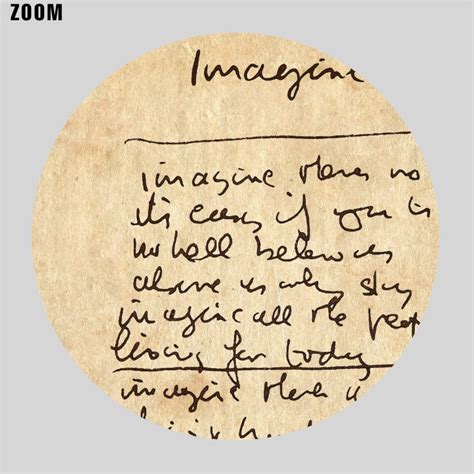 ZOOM
Imagine
imagine theres no
its easy if you
no hell below us
above us only sky
imagine all the peo
living for today
imagine theres